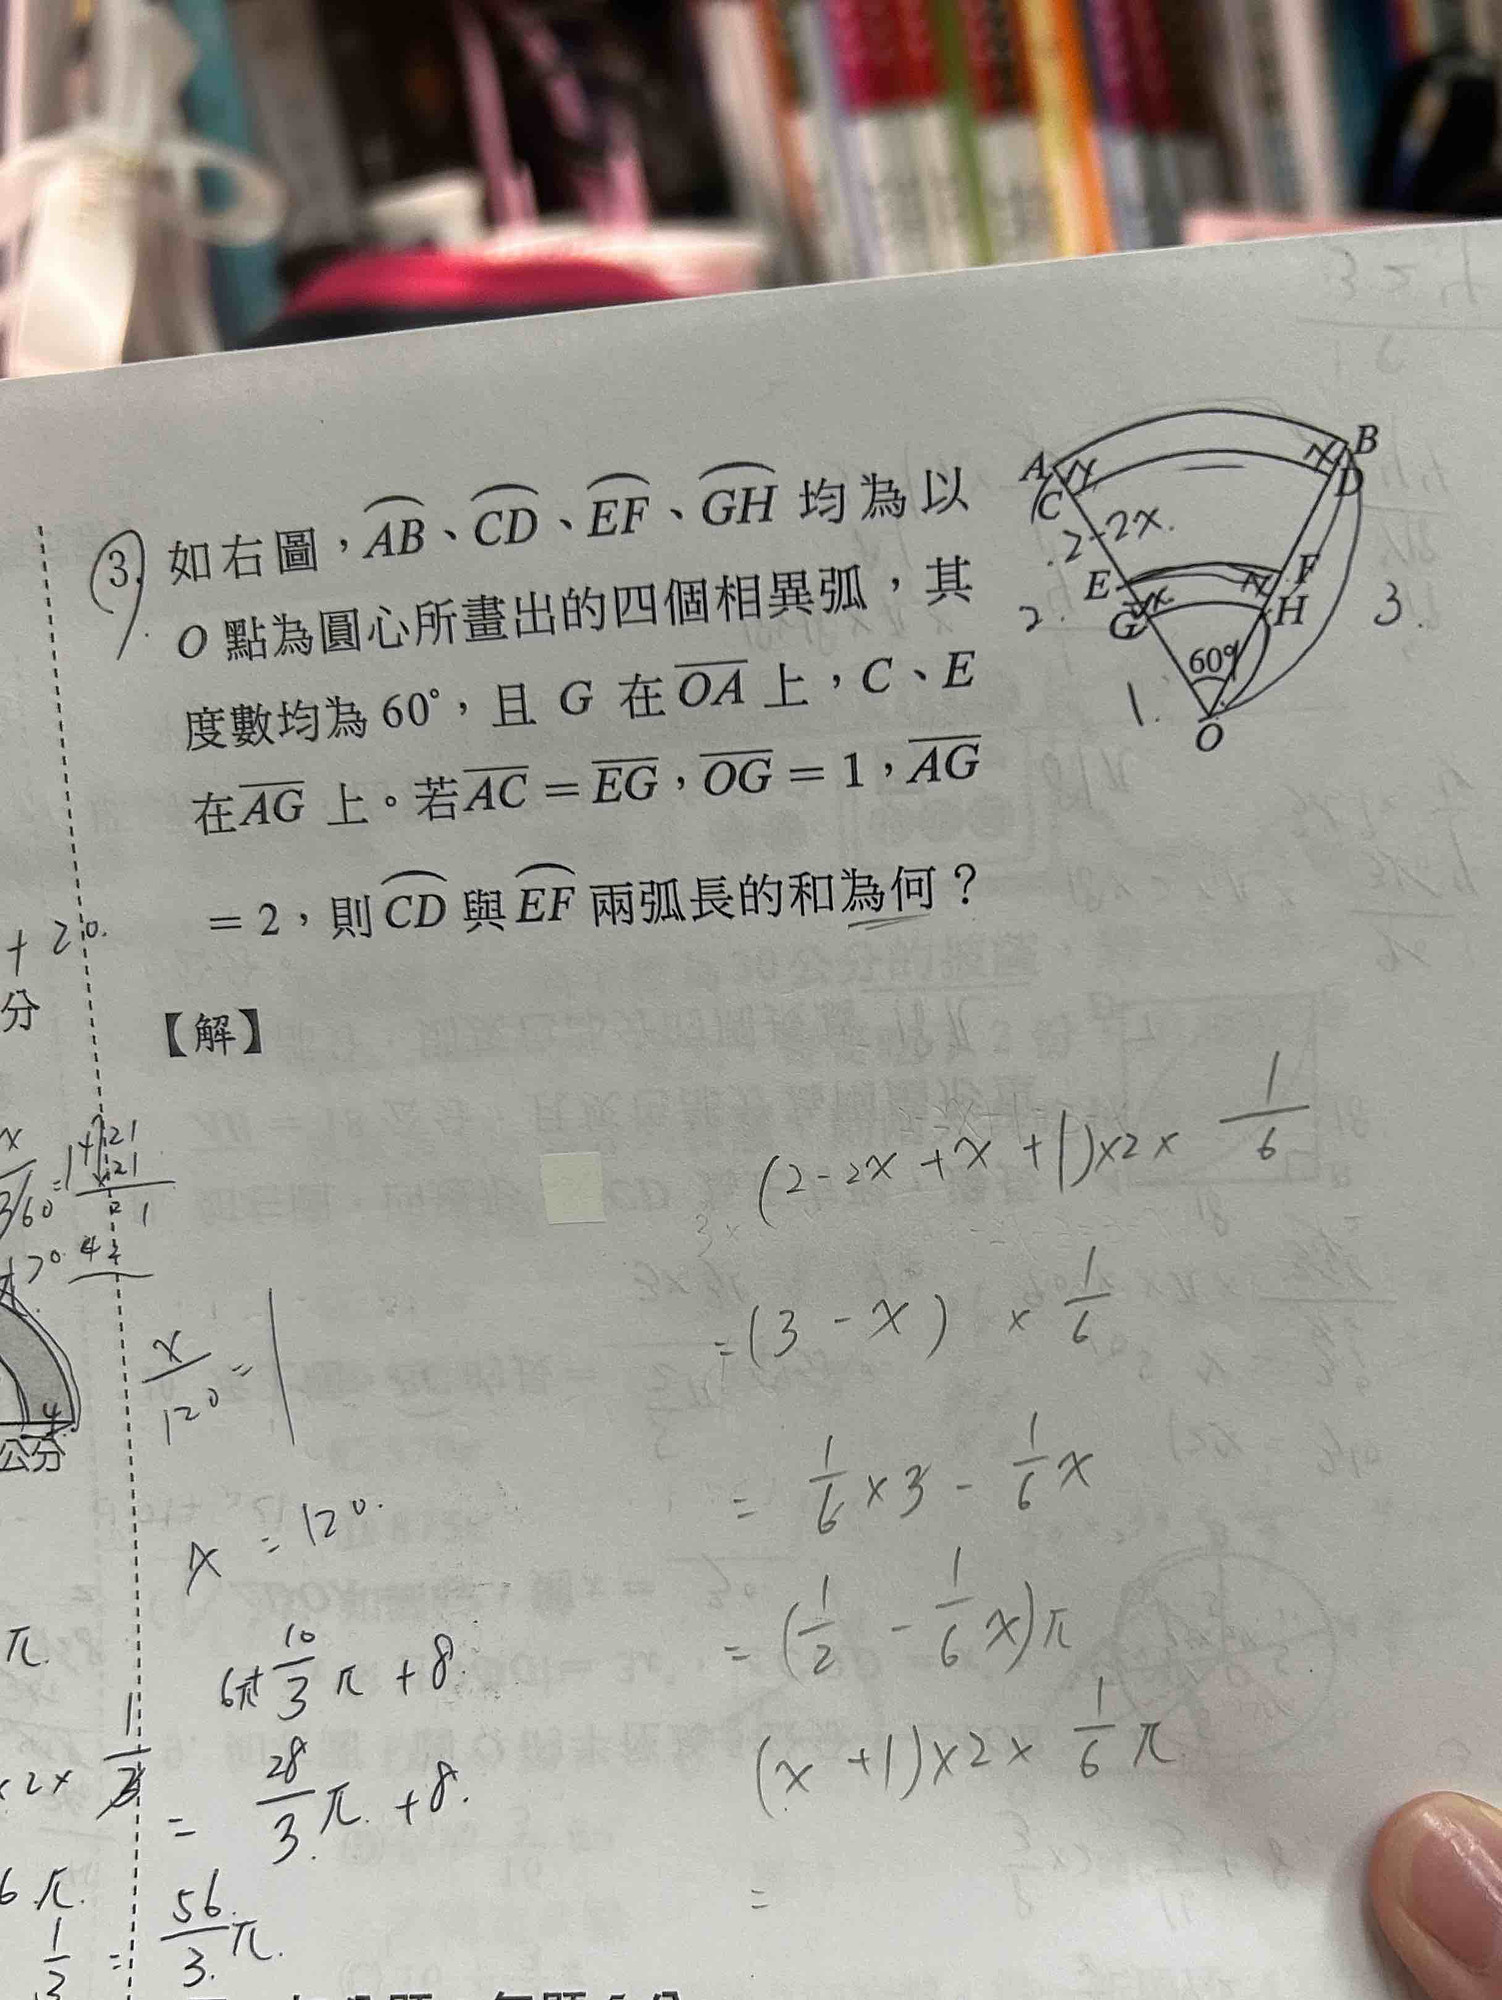 3. 如右圖，AB、CD、EF、GH 均為以
O 點為圓心所畫出的四個相異弧，其
度數均為 60°，且 G 在 OA 上，C、E
在 AG 上。若 AC = EG，OG = 1，AG
= 2，則 CD 與 EF 兩弧長的和為何？
A
B
C
D
2-2x.
E
F
G
H
x
2.
3.
1.
60°
O
【解】
+ 20.
分
(2-2x+x+1)×2×1/6
=(3-x) ×1/6
=1/6×3-1/6x
=(1/2-1/6x)π
(x+1)×2×1/6π
=
x/120=1
x=120.
6π+10/3π+8.
=28/3π+8.
=56/3π.
公分
π
6π.